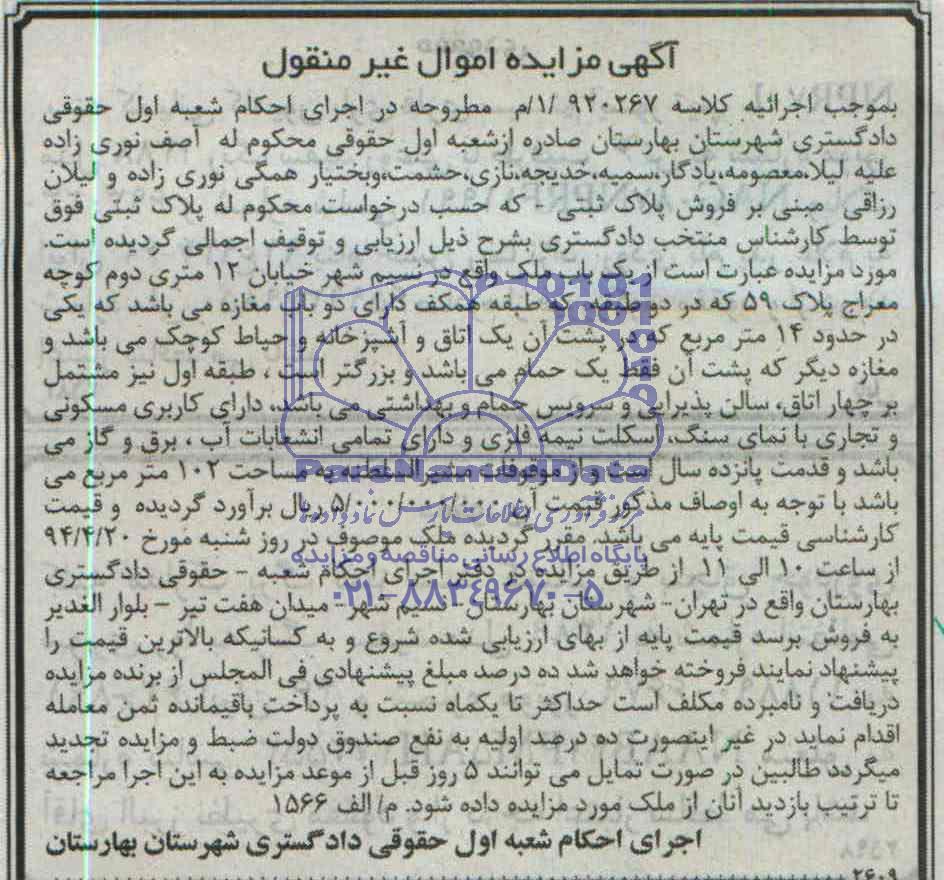 آگهی مزایده اموال غیر منقول
بموجب اجرائیه کلاسه ۹۲۰۲۶۷ /۱/م مطروحه در اجرای احکام شعبه اول حقوقی
دادگستری شهرستان بهارستان صادره ازشعبه اول حقوقی محکوم له آصف نوری زاده
علیه لیلا،معصومه،یادگار،سمیه،خدیجه،نازی،حشمت،وبختیار همگی نوری زاده و لیلان
رزاقی مبنی بر فروش پلاک ثبتی - که حسب درخواست محکوم له پلاک ثبتی فوق
توسط کارشناس منتخب دادگستری بشرح ذیل ارزیابی و توقیف اجمالی گردیده است.
مورد مزایده عبارت است از یک باب ملک واقع در نسیم شهر خیابان ۱۲ متری دوم کوچه
معراج پلاک ۵۹ که در دو طبقه که طبقه همکف دارای دو باب مغازه می باشد که یکی
در حدود ۱۴ متر مربع که در پشت آن یک اتاق و آشپزخانه و حیاط کوچک می باشد و
مغازه دیگر که پشت آن فقط یک حمام می باشد و بزرگتر است ، طبقه اول نیز مشتمل
بر چهار اتاق، سالن پذیرایی و سرویس حمام و بهداشتی می باشد، دارای کاربری مسکونی
و تجاری با نمای سنگ، اسکلت نیمه فلزی و دارای تمامی انشعابات آب ، برق و گاز می
باشد و قدمت پانزده سال است و از موقوفات منیر السلطنه به مساحت ۱۰۲ متر مربع می
باشد با توجه به اوصاف مذکور قیمت آن ۵/۰۰۰/۰۰۰/۰۰۰ ریال برآورد گردیده و قیمت
کارشناسی قیمت پایه می باشد. مقرر گردیده ملک موصوف در روز شنبه مورخ ۹۴/۴/۲۰
از ساعت ۱۰ الی ۱۱ از طریق مزایده در دفتر اجرای احکام شعبه - حقوقی دادگستری
بهارستان واقع در تهران- شهرستان بهارستان - نسیم شهر- میدان هفت تیر - بلوار الغدیر
به فروش برسد قیمت پایه از بهای ارزیابی شده شروع و به کسانیکه بالاترین قیمت را
پیشنهاد نمایند فروخته خواهد شد ده درصد مبلغ پیشنهادی فی المجلس از برنده مزایده
دریافت و نامبرده مکلف است حداکثر تا یکماه نسبت به پرداخت باقیمانده ثمن معامله
اقدام نماید در غیر اینصورت ده درصد اولیه به نفع صندوق دولت ضبط و مزایده تجدید
میگردد طالبین در صورت تمایل می توانند ۵ روز قبل از موعد مزایده به این اجرا مراجعه
تا ترتیب بازدید آنان از ملک مورد مزایده داده شود. م/ الف ۱۵۶۶
اجرای احکام شعبه اول حقوقی دادگستری شهرستان بهارستان
۲۶۰۹
ParsNamadData
مرکز فرآوری اطلاعات پارس نماد داده ها
پایگاه اطلاع رسانی مناقصه و مزایده
۰۲۱-۸۸۳۴۹۶۷۰-۵